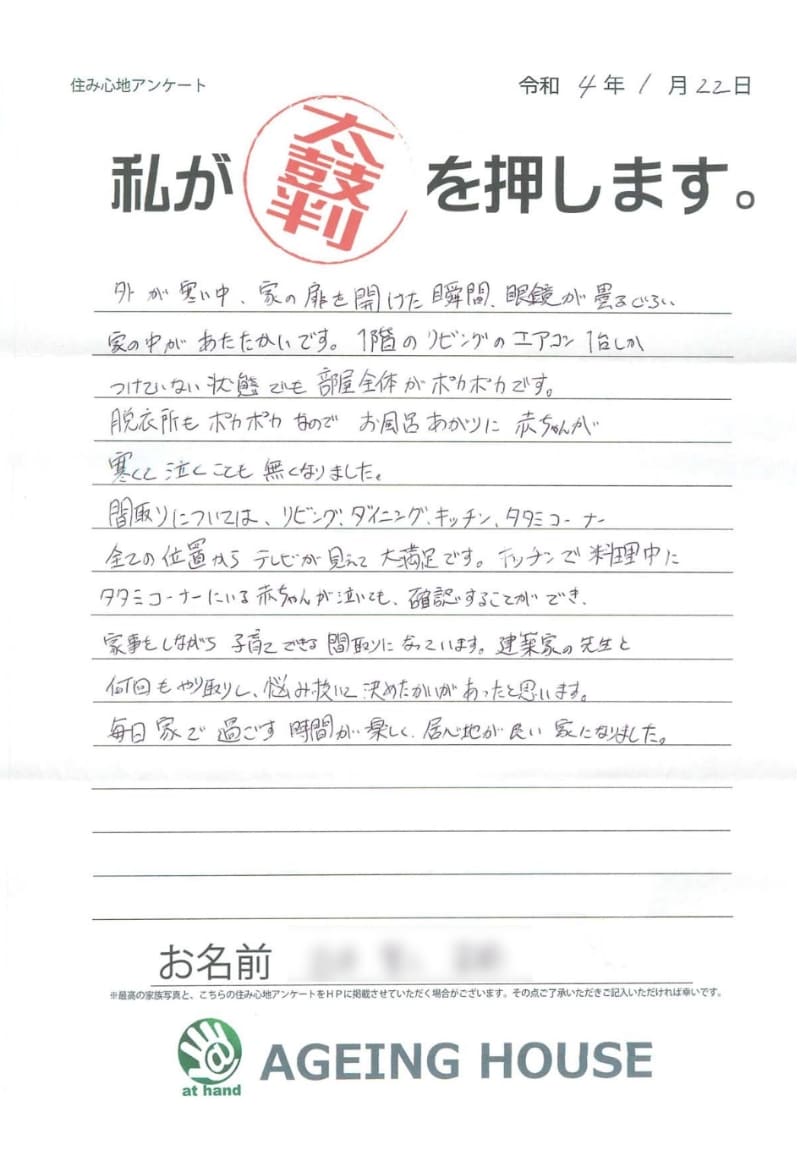 住み心地アンケート
令和 4年 1月 22日
私が 太鼓判 を押します。
外が寒い中、家の扉を開けた瞬間、眼鏡が曇るぐらい
家の中があたたかいです。1階のリビングのエアコン1台しか
つけていない状態でも部屋全体がポカポカです。
脱衣所もポカポカなのでお風呂あがりに赤ちゃんが
寒くて泣くことも無くなりました。
間取りについては、リビング、ダイニング、キッチン、タタミコーナー
全ての位置からテレビが見えて大満足です。キッチンで料理中に
タタミコーナーにいる赤ちゃんが泣いても、確認することができ、
家事をしながら子育てできる間取りになっています。建築家の先生と
何回もやり取りし、悩み抜いて決めたかいがあったと思います。
毎日家で過ごす時間が楽しく、居心地が良い家になりました。
お名前
※最高の家族写真と、こちらの住み心地アンケートをHPに掲載させていただく場合がございます。その点ご了承いただきご記入いただければ幸いです。
@
at hand
AGEING HOUSE